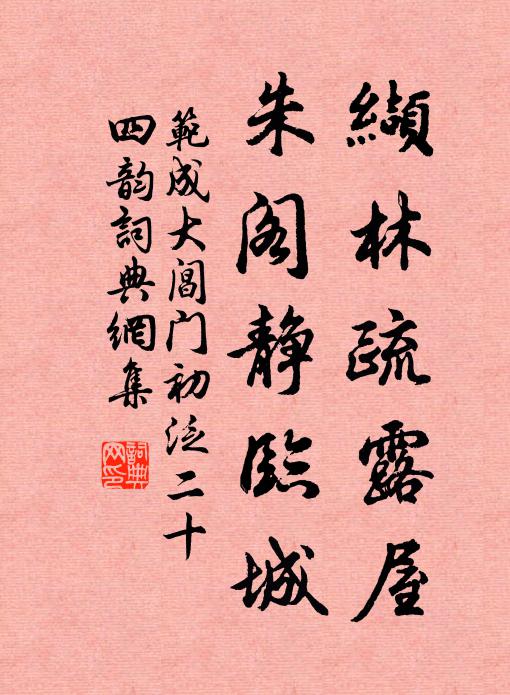 纈林疏露屋
朱阁静臨城
範成大閶门初泛二十
四韵詞典網集
詞典
网印